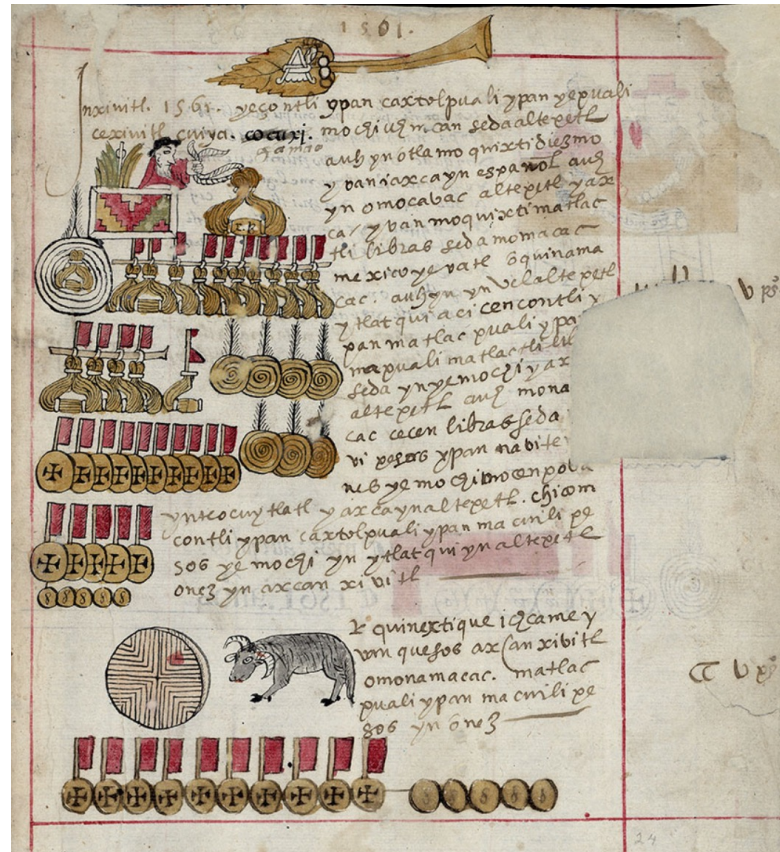 1561.
Inxivitl. 1561. yecontli ypan caxtolpuali ypan yepuali
cexivitl cuiya. cocuxj. mochiuh in can seda altepetl
gamao
auh yn otlamo quixti diezmo
y pan iaxca yn español auh
yn omocavac altepetl yax
ca / y van moquixti matlac
tli libras seda momacac
mexico ye vatl quinama
cac. auh yn velaltepetl
ytlatqui aci cencontli y
pan matlac puali ypa
mapuali matlactli
seda yn ye mochi yax
altepetl auh mona
cac cecen libras seda
vi pesos ypan navi te
nes ye mochi mocenpova
ynteocuytlatl yaxcaynaltepetl. chicom
contli ypan caxtolpuali ypan macuili pe
sos ye mochi yn ytlatqui ynaltepetl
onez yn axcan xivitl
quinextique ichcame y
van quesos axcan xibitl
omonamacac. matlac
puali ypan macuili pe
sos yn onez
V ps
V ps
24